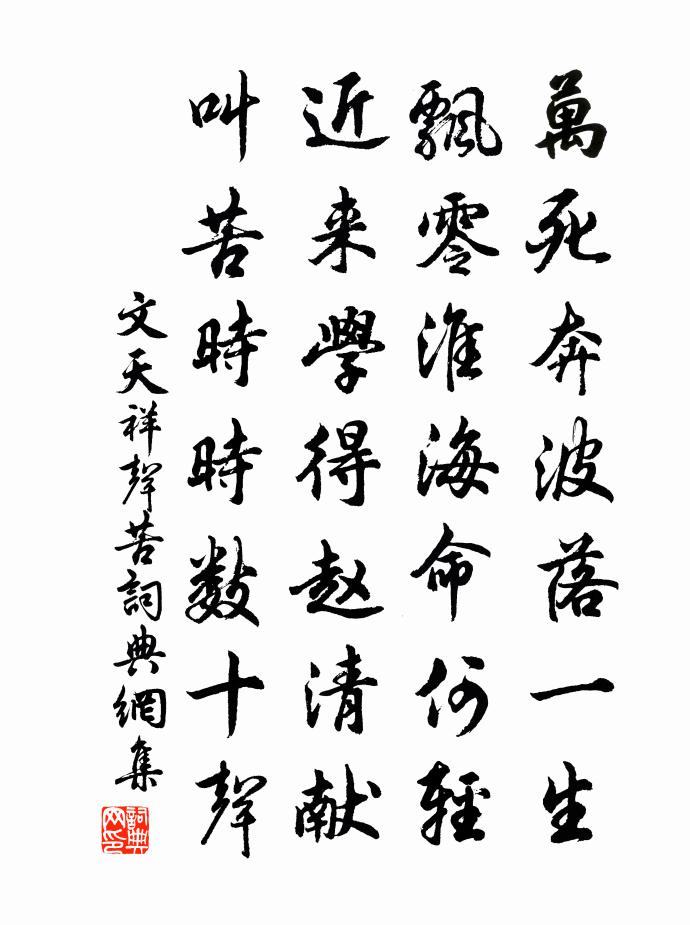 萬死奔波落一生
飄零淮海命何輕
近来學得赵清献
叫苦時時數十聲
文天祥聲苦詞典網集
詞典
网印